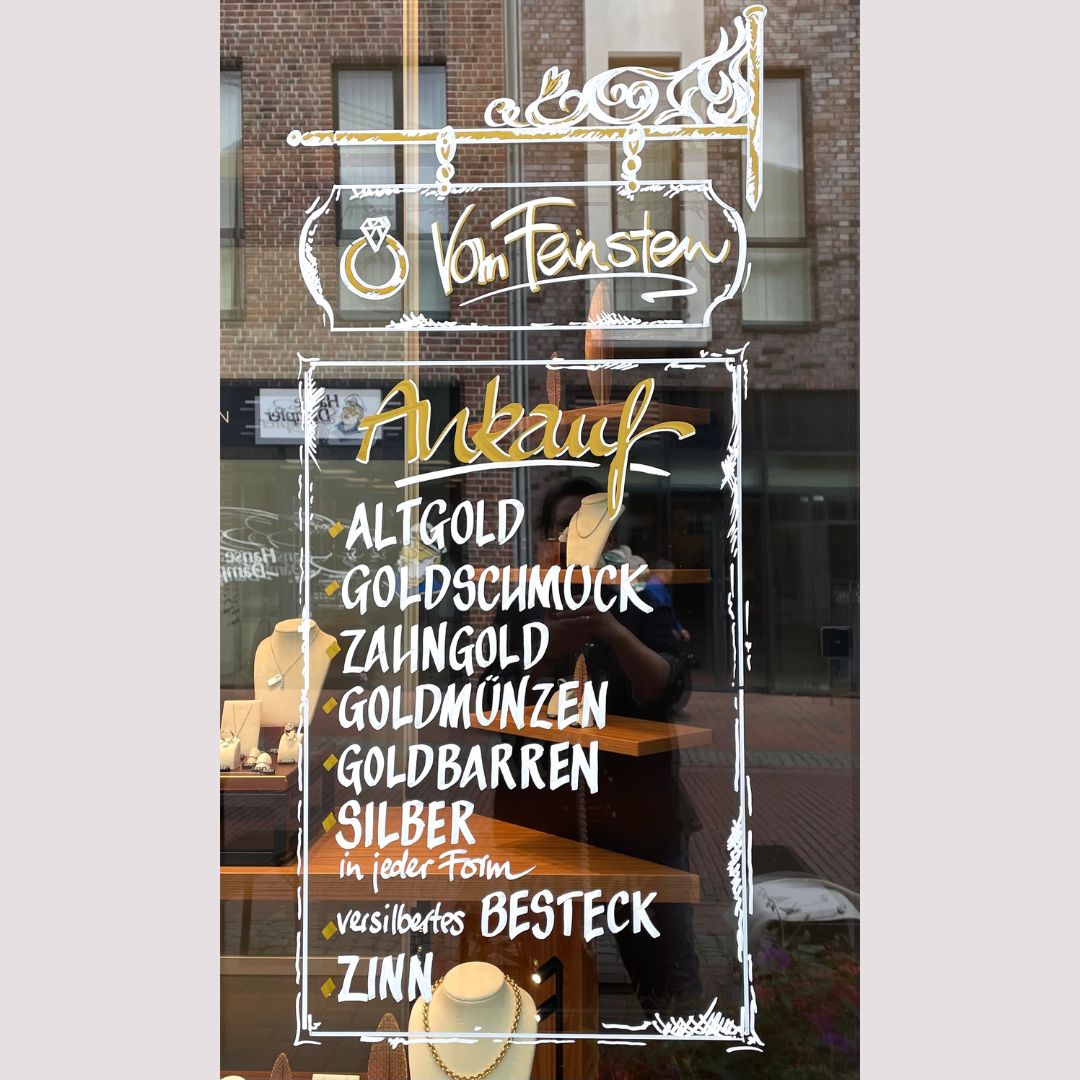 Vom Feinsten
Ankauf
ALTGOLD
GOLDSCHMUCK
ZAHNGOLD
GOLDMÜNZEN
GOLDBARREN
SILBER
in jeder Form
versilbertes BESTECK
ZINN
Hanse
Dampfer